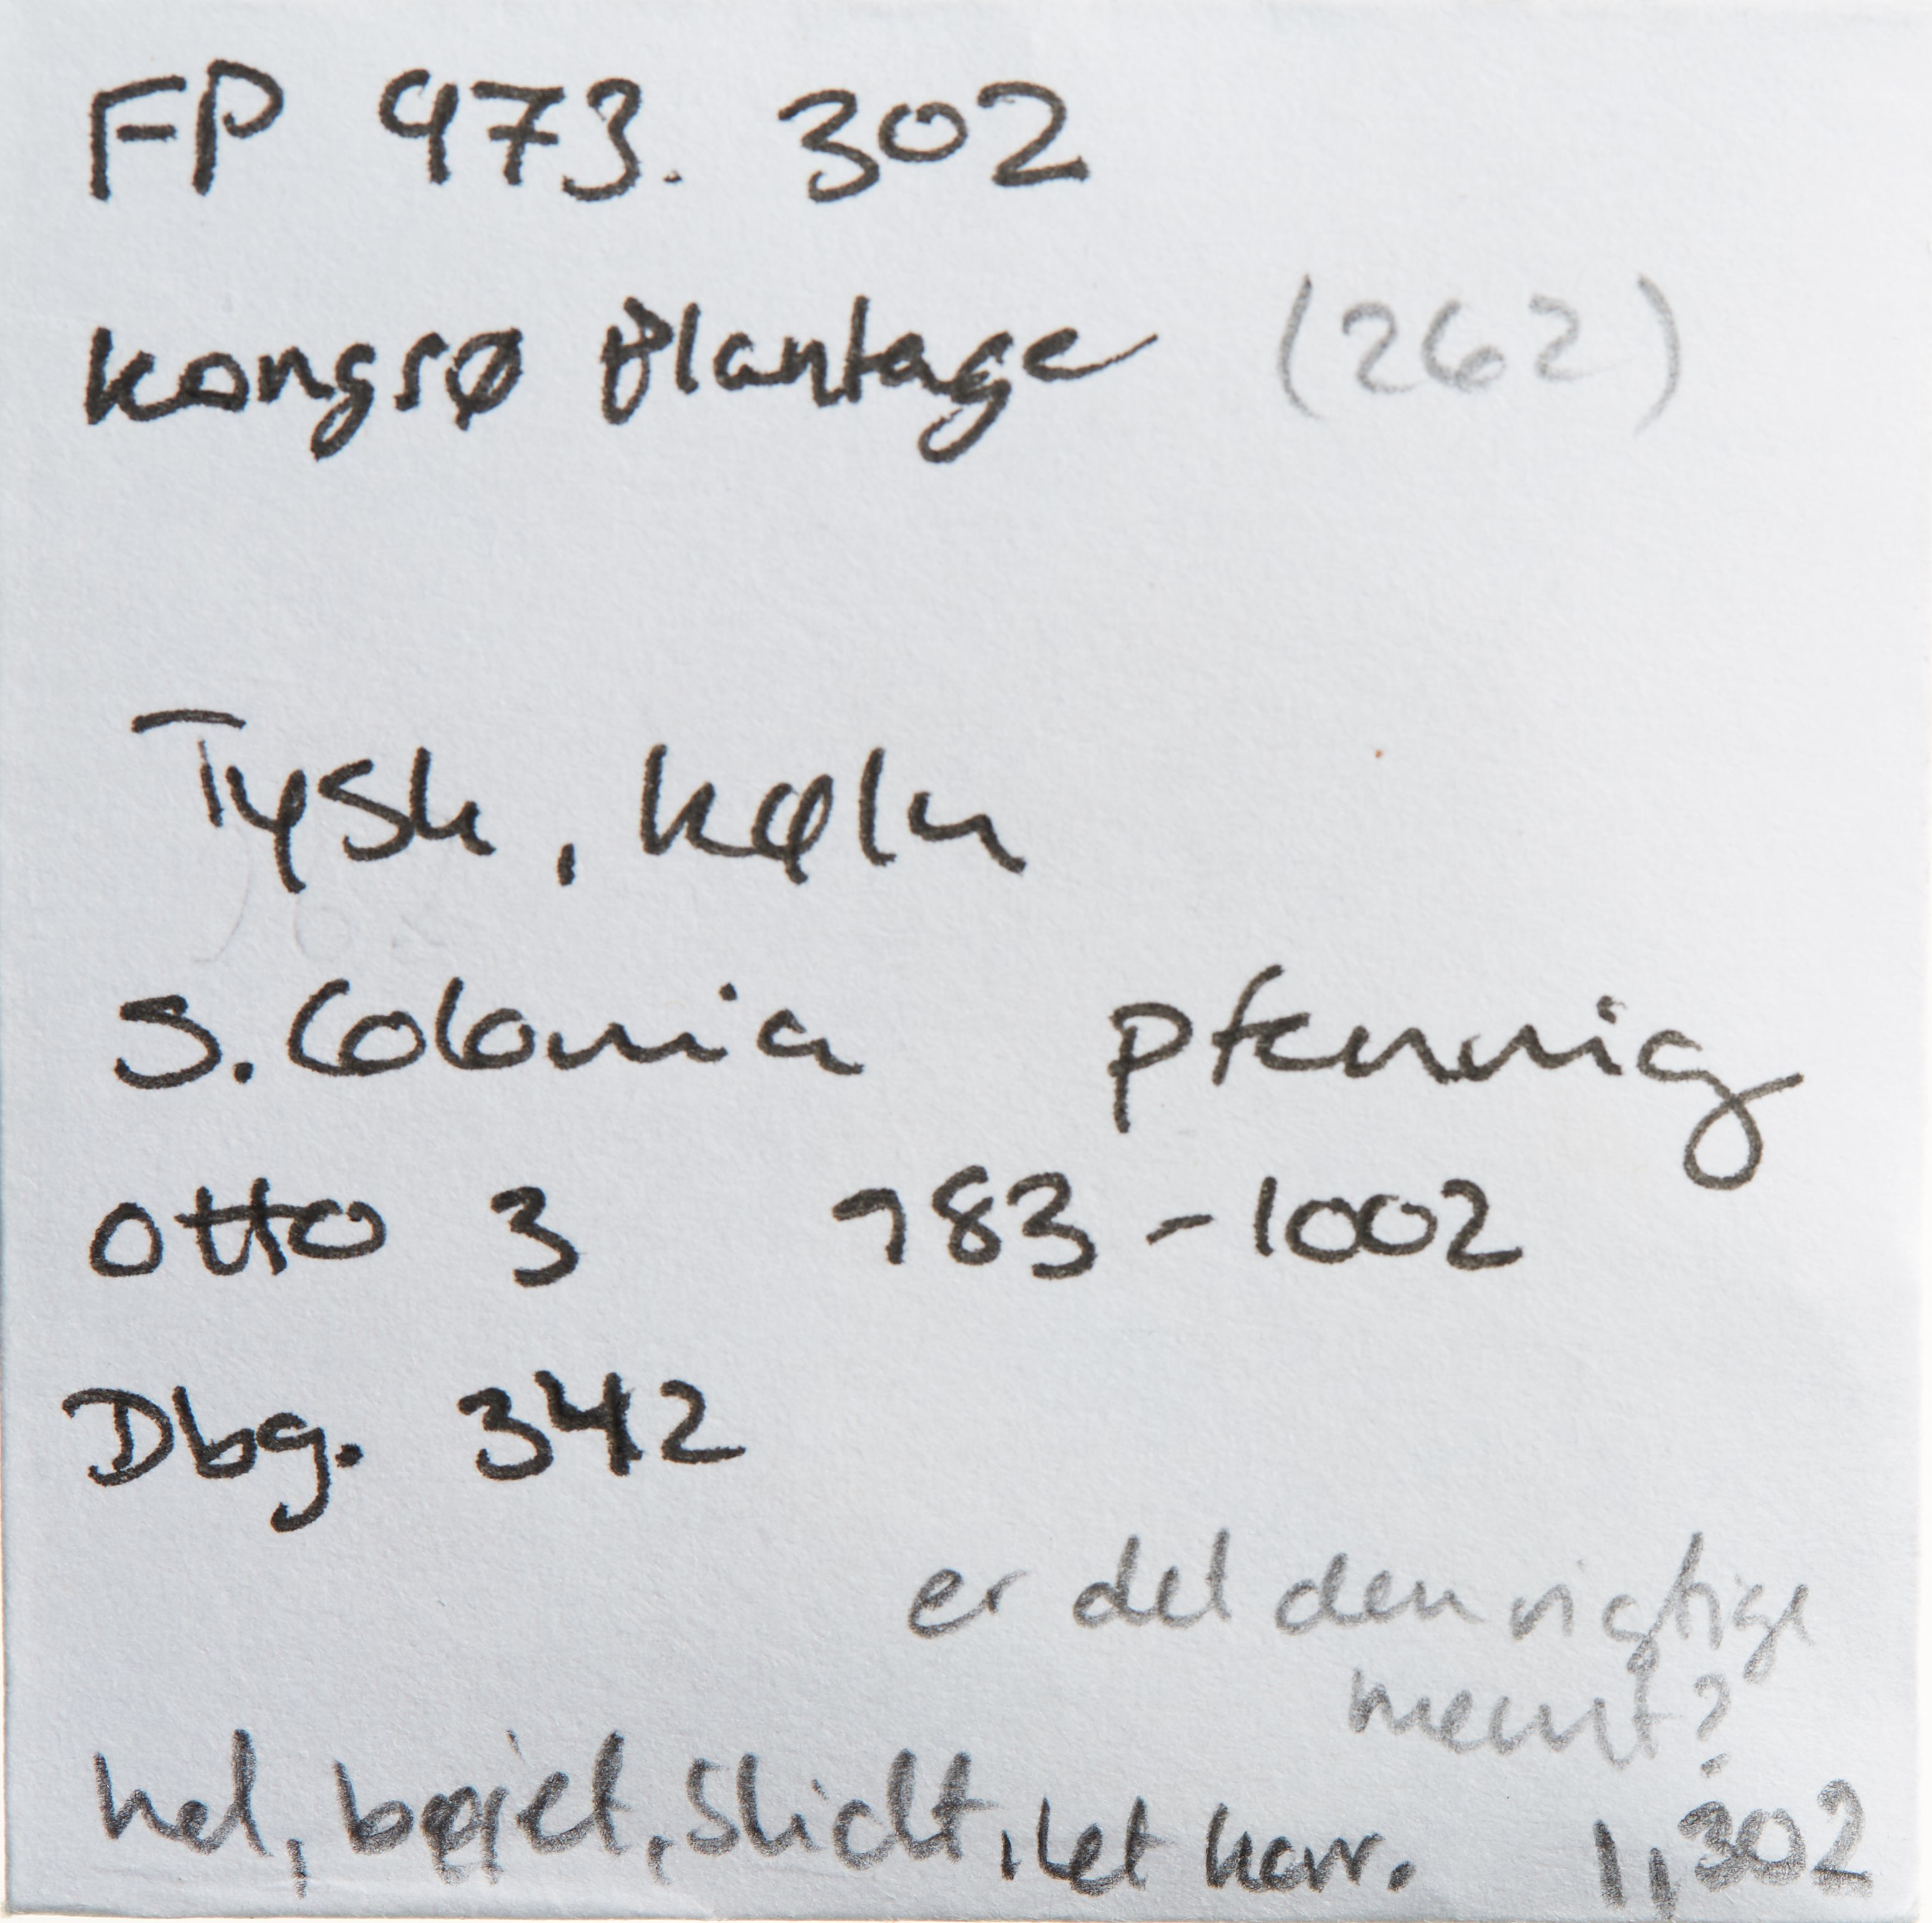 FP 973. 302
Kongsø Plantage (262)
Tysk, Køln
S. Colonia Pfennig
Otto 3 983-1002
Dbg. 342
er det den rigtige
mønt?
hel, bøjet, slidt, let korr. 1,302